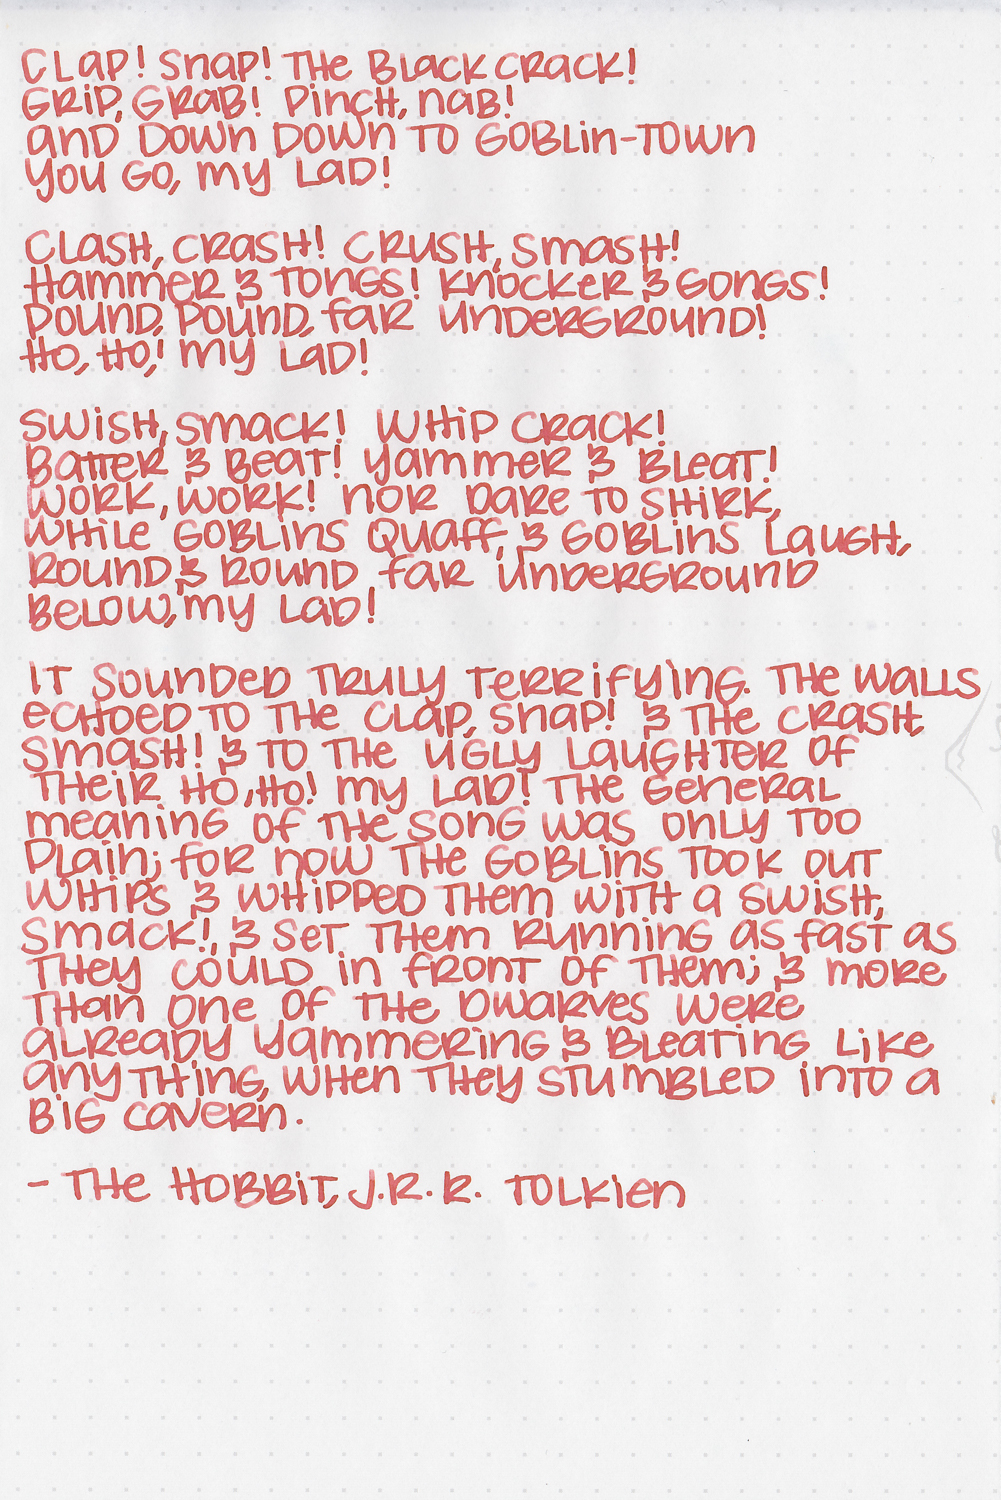 Clap! Snap! The Black crack!
Grip, Grab! Pinch, nab!
and Down Down to Goblin-town
You go, my lad!
Clash, crash! Crush, smash!
Hammer & tongs! Knocker & gongs!
Pound, pound, far underground!
Ho, ho! my lad!
Swish, smack! Whip crack!
Batter & beat! Yammer & bleat!
Work, work! nor dare to shirk,
While goblins quaff, & goblins laugh,
Round & round far underground
Below, my lad!
It sounded truly terrifying. The walls
echoed to the clap, snap! & the crash,
smash! & to the ugly laughter of
their ho, ho! my lad! The general
meaning of the song was only too
plain; for now the goblins took out
whips & whipped them with a swish,
smack!, & set them running as fast as
they could in front of them; & more
than one of the dwarves were
already yammering & bleating like
anything, when they stumbled into a
big cavern.
- The Hobbit, J.R.R. Tolkien